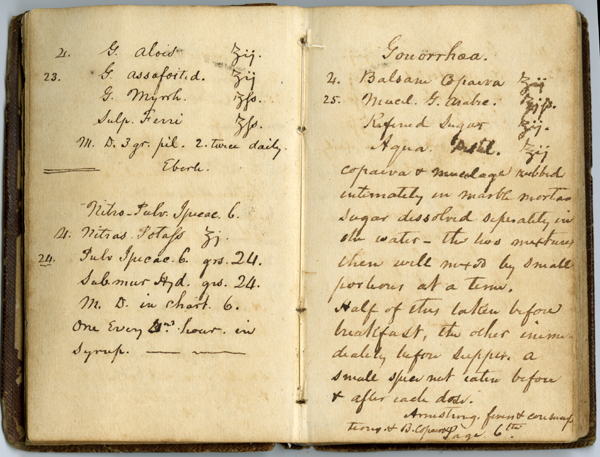 4. G. Aloes ʒij.
23. G. assafoitid. ʒij
G. Myrrh. ʒſs.
Sulp. Ferri ʒſs.
M. D. 3 gr. pil. 2. twice daily.
Eberle.
Nitro-Pulv. Ipecac. 6.
4. Nitras. Potass ʒj.
24. Pulv Ipecac. 6. grs. 24.
Submur Hyd. grs. 24.
M. D. in chart. 6.
One Every hour. in
syrup.
Gonorrhœa.
4. Balsam Copaiva ʒij
25. Mucil. G. Arabic.
Refined Sugar ʒij.
Aqua. ʒij
copaiva & mucelage rubbed
intimately in marble mortar
sugar dissolved seperately in
the water - the two mixtures
then well mixed by small
portions at a time.
Half of this taken before
breakfast, the other imme-
diately before supper. a
small
& after each dose.
Armstrong. fevers &
tions. & B. Copaiva Page 6th.